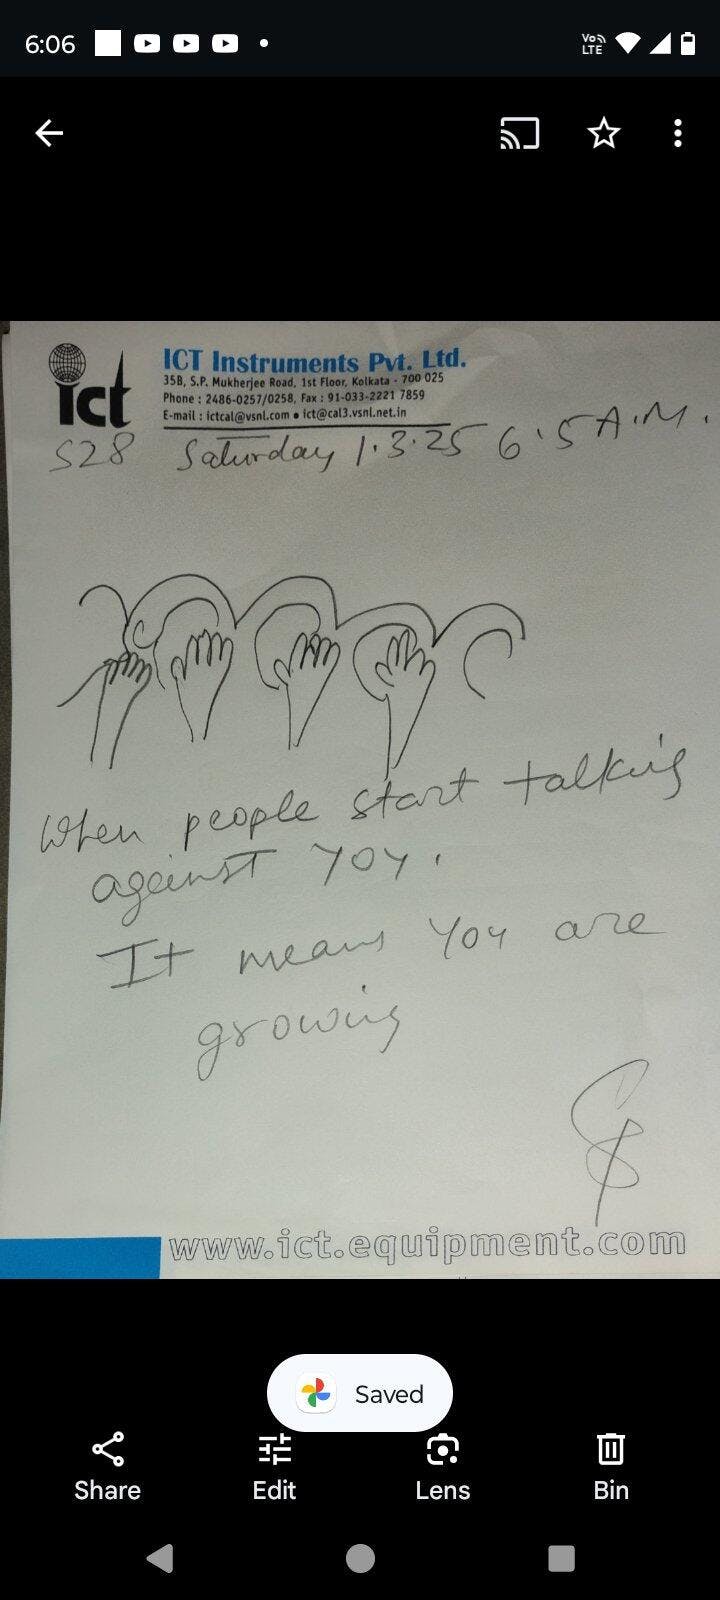 6:06
Vo LTE
ict
ICT Instruments Pvt. Ltd.
35B, S.P. Mukherjee Road, 1st Floor, Kolkata - 700 025
Phone : 2486-0257/0258, Fax : 91-033-2221 7859
E-mail : ictcal@vsnl.com • ict@cal3.vsnl.net.in
S28 Saturday 1.3.25 6.5 A.M.
When people start talking
against you.
It means you are
growing
www.ict.equipment.com
Saved
Share Edit Lens Bin